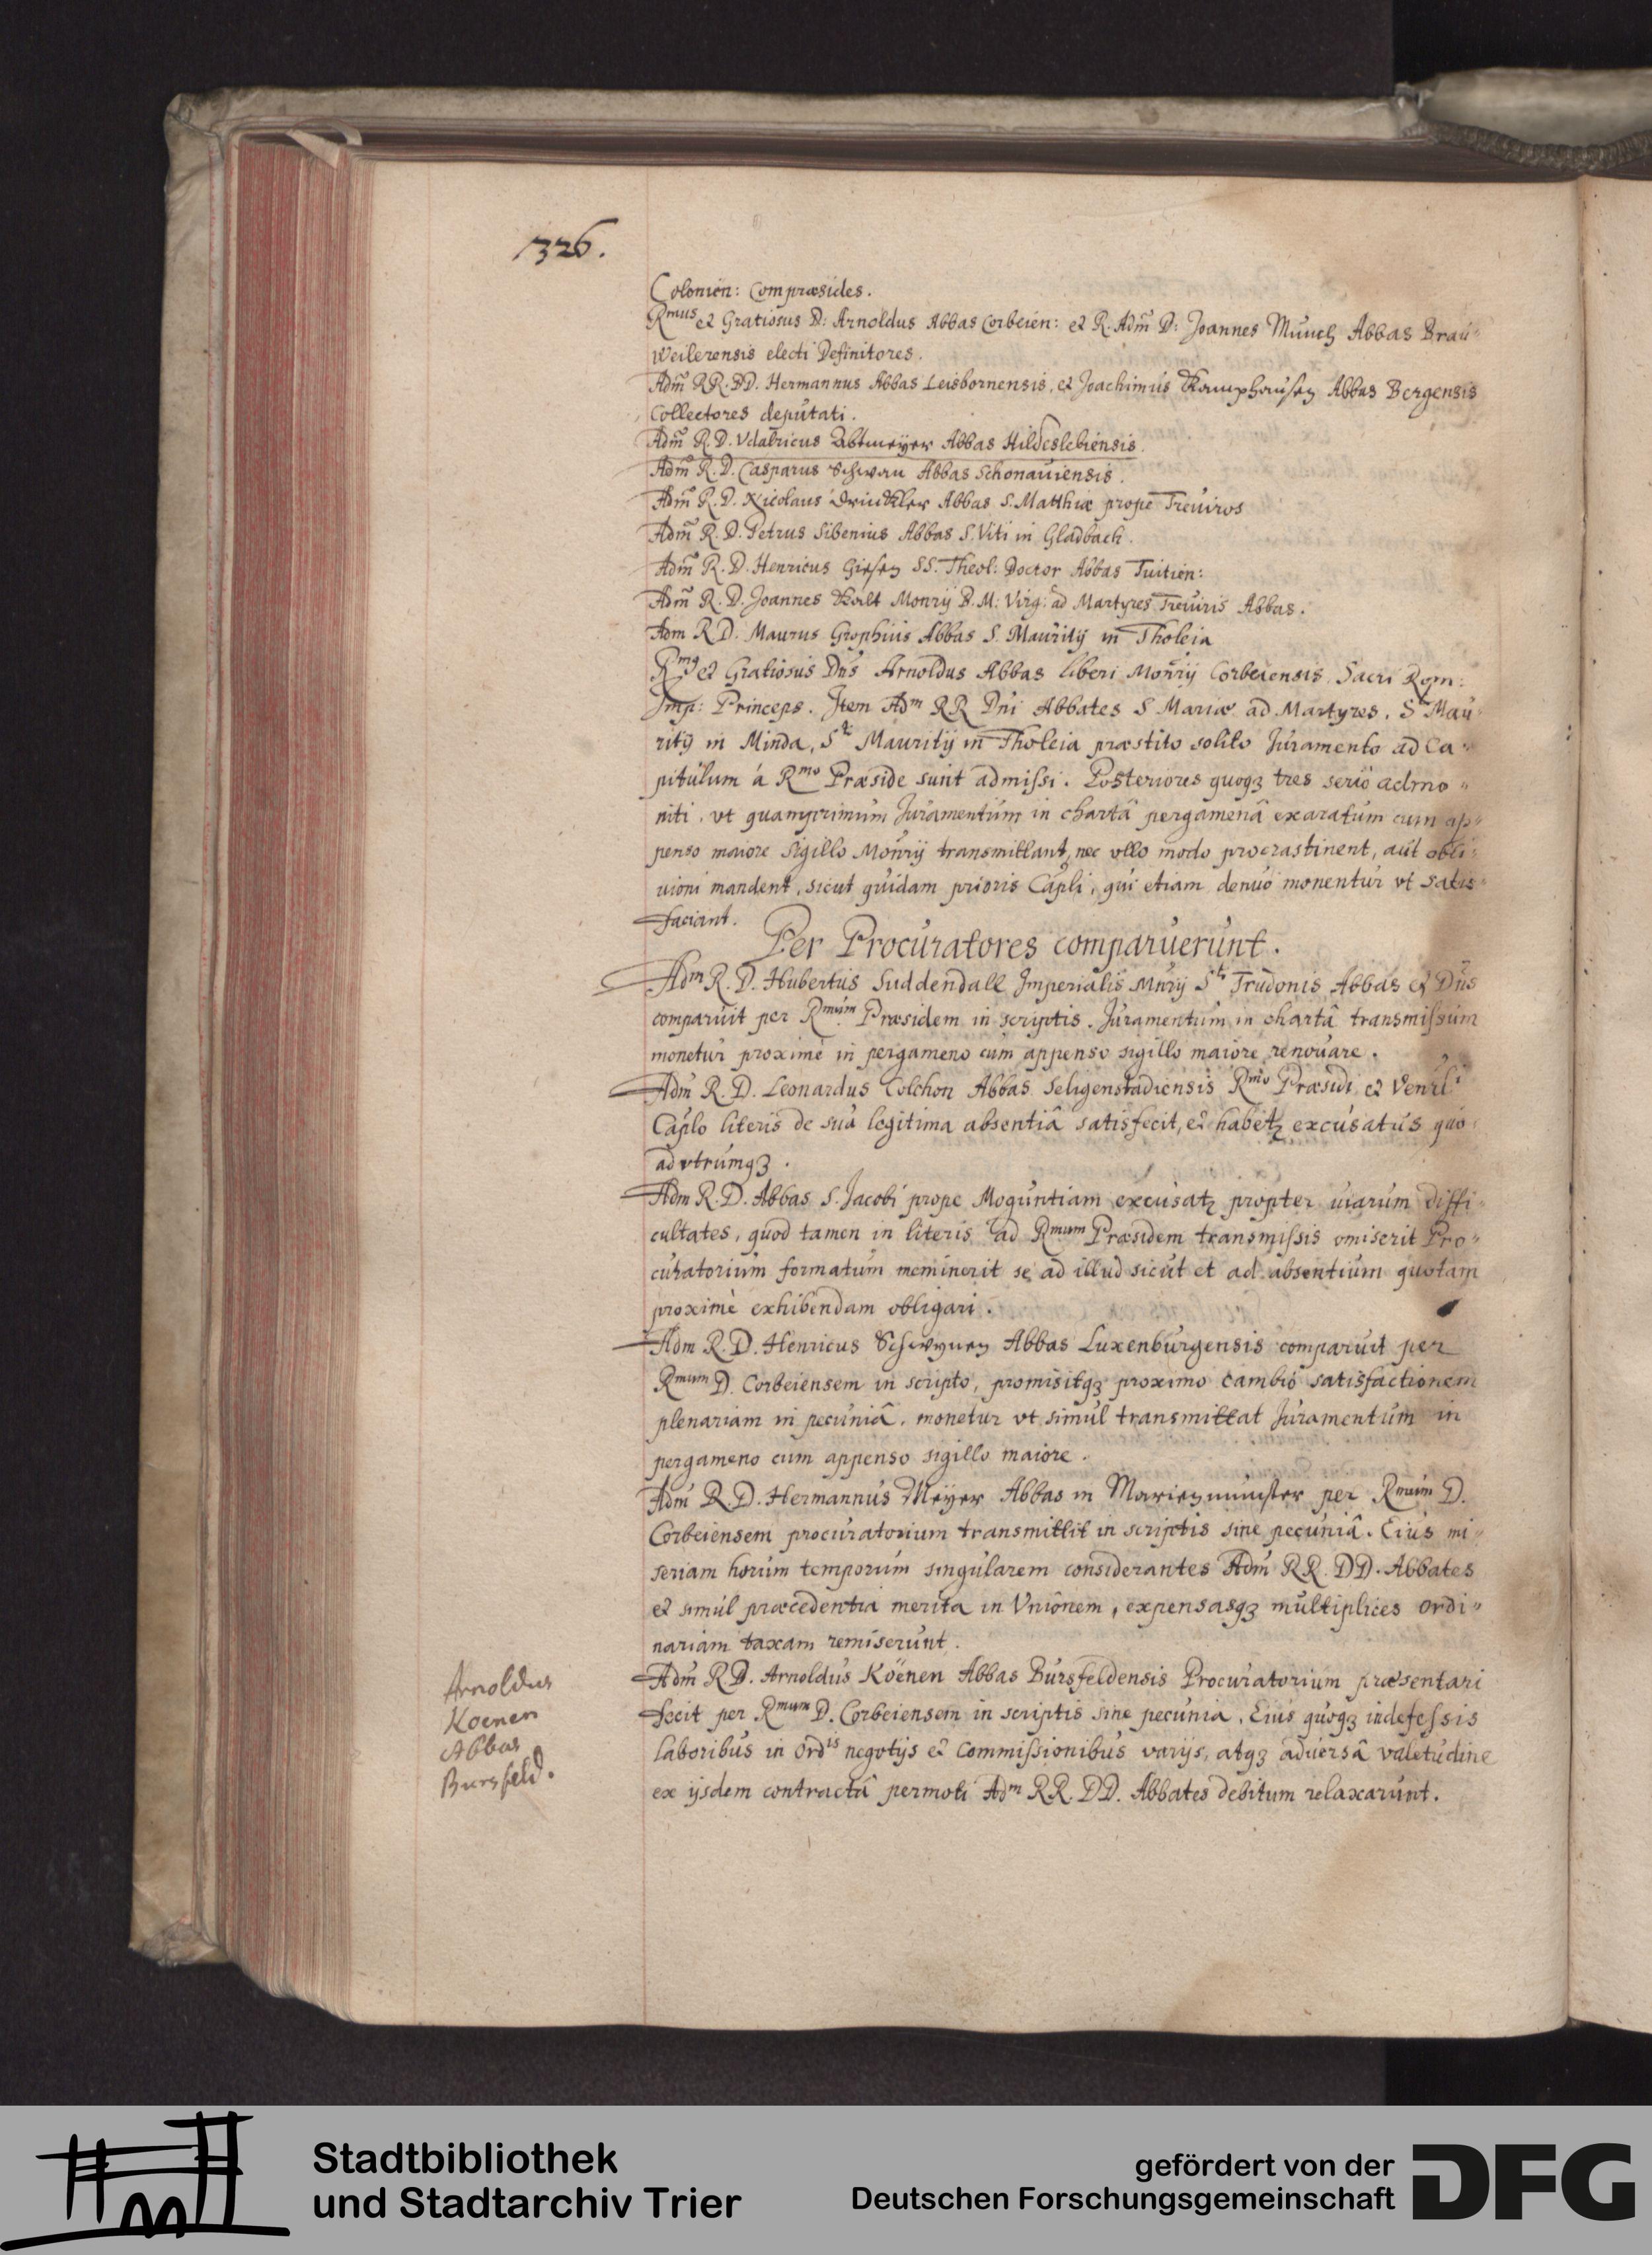 326.
Colonien: Compræsides.
Rmus et Gratiosus D: Arnoldus Abbas Corbeien: et R. Adm̃ D: Joannes Münch Abbas Brau=
weilerensis electi Definitores.
Adm̃ RR. DD. Hermannus Abbas Leisbornensis, et Joachimus Kamphausen Abbas Bergensis
Collectores deputati.
Adm̃ R. D. Vdalricus Abtmeyer Abbas Hildeslebiensis.
Adm̃ R. D. Casparus Schwan Abbas Schonauiensis.
Adm̃ R. D. Nicolaus Abbas S. Matthiæ prope Treuiros
Adm̃ R. D. Petrus Sibenius Abbas S. Viti in Gladbach.
Adm̃ R. D. Henricus Giesen SS. Theol: Doctor Abbas Tuitien:
Adm̃ R. D. Joannes Kalt Monrij B. M. Virg: ad Martyres Treuiris Abbas.
Adm R D. Maurus Grophius Abbas S. Mauritij in Tholeia
Rmg et Gratiosus Dñs Arnoldus Abbas liberi Monrij Corbeiensis Sacri Rom:
Imp: Princeps. Item Adm RR Dni Abbates S Mariæ ad Martyres, Sti Mau=
ritij in Minda, Sti Mauritij in Tholeia præstito solito Juramento ad Ca=
pitulum á Rmo Præside sunt admissi. Posteriores quoqʒ tres serio admo=
niti, vt quamprimum Juramentum in chartâ pergamenâ exaratum cum ap=
penso maiore Sigillo Monrij transmittant, nec vllo modo procrastinent, aut obli=
uioni mandent, sicut quidam prioris Capli, qui etiam denuo monentur vt satis=
faciant.
Per Procuratores comparuerunt.
Adm R. D. Hubertus Suddendall Imperialis Mnrij Sti Trudonis Abbas et Dñs
comparuit per Rmum Præsidem in scriptis. Juramentum in chartâ transmissum
monetur proximè in pergameno cum appenso sigillo maiore renouare.
Adm R. D. Leonardus Colchon Abbas Seligenstadiensis Rmo Præsidi et Venrli
Caplo literis de suâ legitima absentiâ satisfecit, et habetʒ excusatus quo
ad vtrumqʒ.
Adm R. D. Abbas S. Jacobi prope Moguntiam excusatʒ propter uiarum diffi=
cultates, quod tamen in literis ad Rmum Præsidem transmissis omiserit Pro=
curatorium formatum meminerit se ad illud sicut et ad absentium quotam
proximè exhibendam obligari.
Adm R. D. Henricus Schwynen Abbas Luxenburgensis comparuit per
Rmum D. Corbeiensem in scripto, promisitqʒ proximo cambio satisfactionem
plenariam in pecuniâ. monetur vt simul transmittat Juramentum in
pergameno cum appenso sigillo maiore.
Adm R. D. Hermannus Meyer Abbas in Marienmünster per Rmum D.
Corbeiensem procuratorium transmittit in scriptis sine pecuniâ. Eius mi=
seriam horum temporum singularem considerantes Adm RR. DD. Abbates
et simul præcedentia merita in Vnionem, expensasqʒ multiplices ordi=
nariam taxam remiserunt.
Adm R D. Arnoldus Köenen Abbas Bursfeldensis Procuratorium præsentari
fecit per Rmum D. Corbeiensem in scriptis sine pecunia. Eius quoqʒ indefessis
laboribus in Ordis negotijs et Commissionibus varijs, atqʒ aduersâ valetudine
ex ijsdem contractâ permoti Adm RR. DD. Abbates debitum relaxarunt.
Arnoldus
Koenen
Abbas
Bursfeld.
Stadtbibliothek
und Stadtarchiv Trier
gefördert von der
Deutschen Forschungsgemeinschaft
DFG